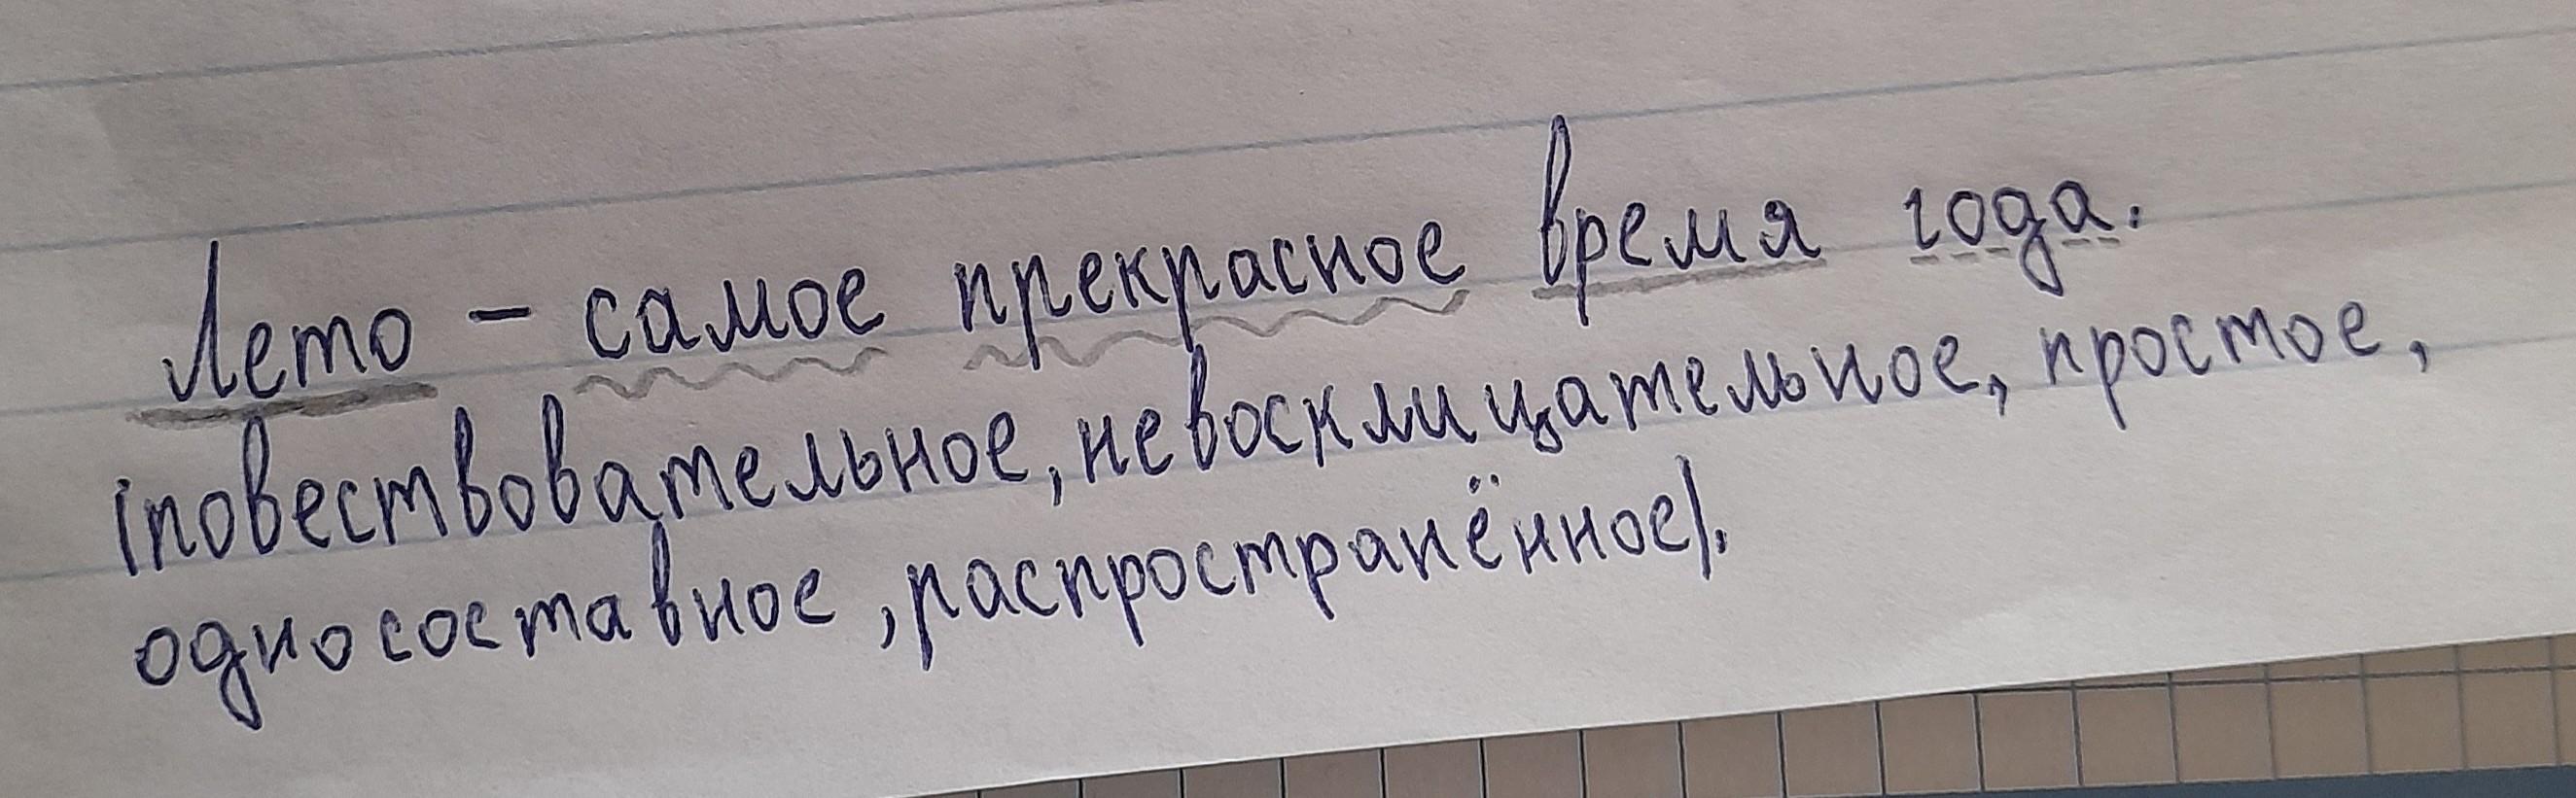 Лето – самое прекрасное время года.
(повествовательное, невосклицательное, простое,
односоставное, распространённое).